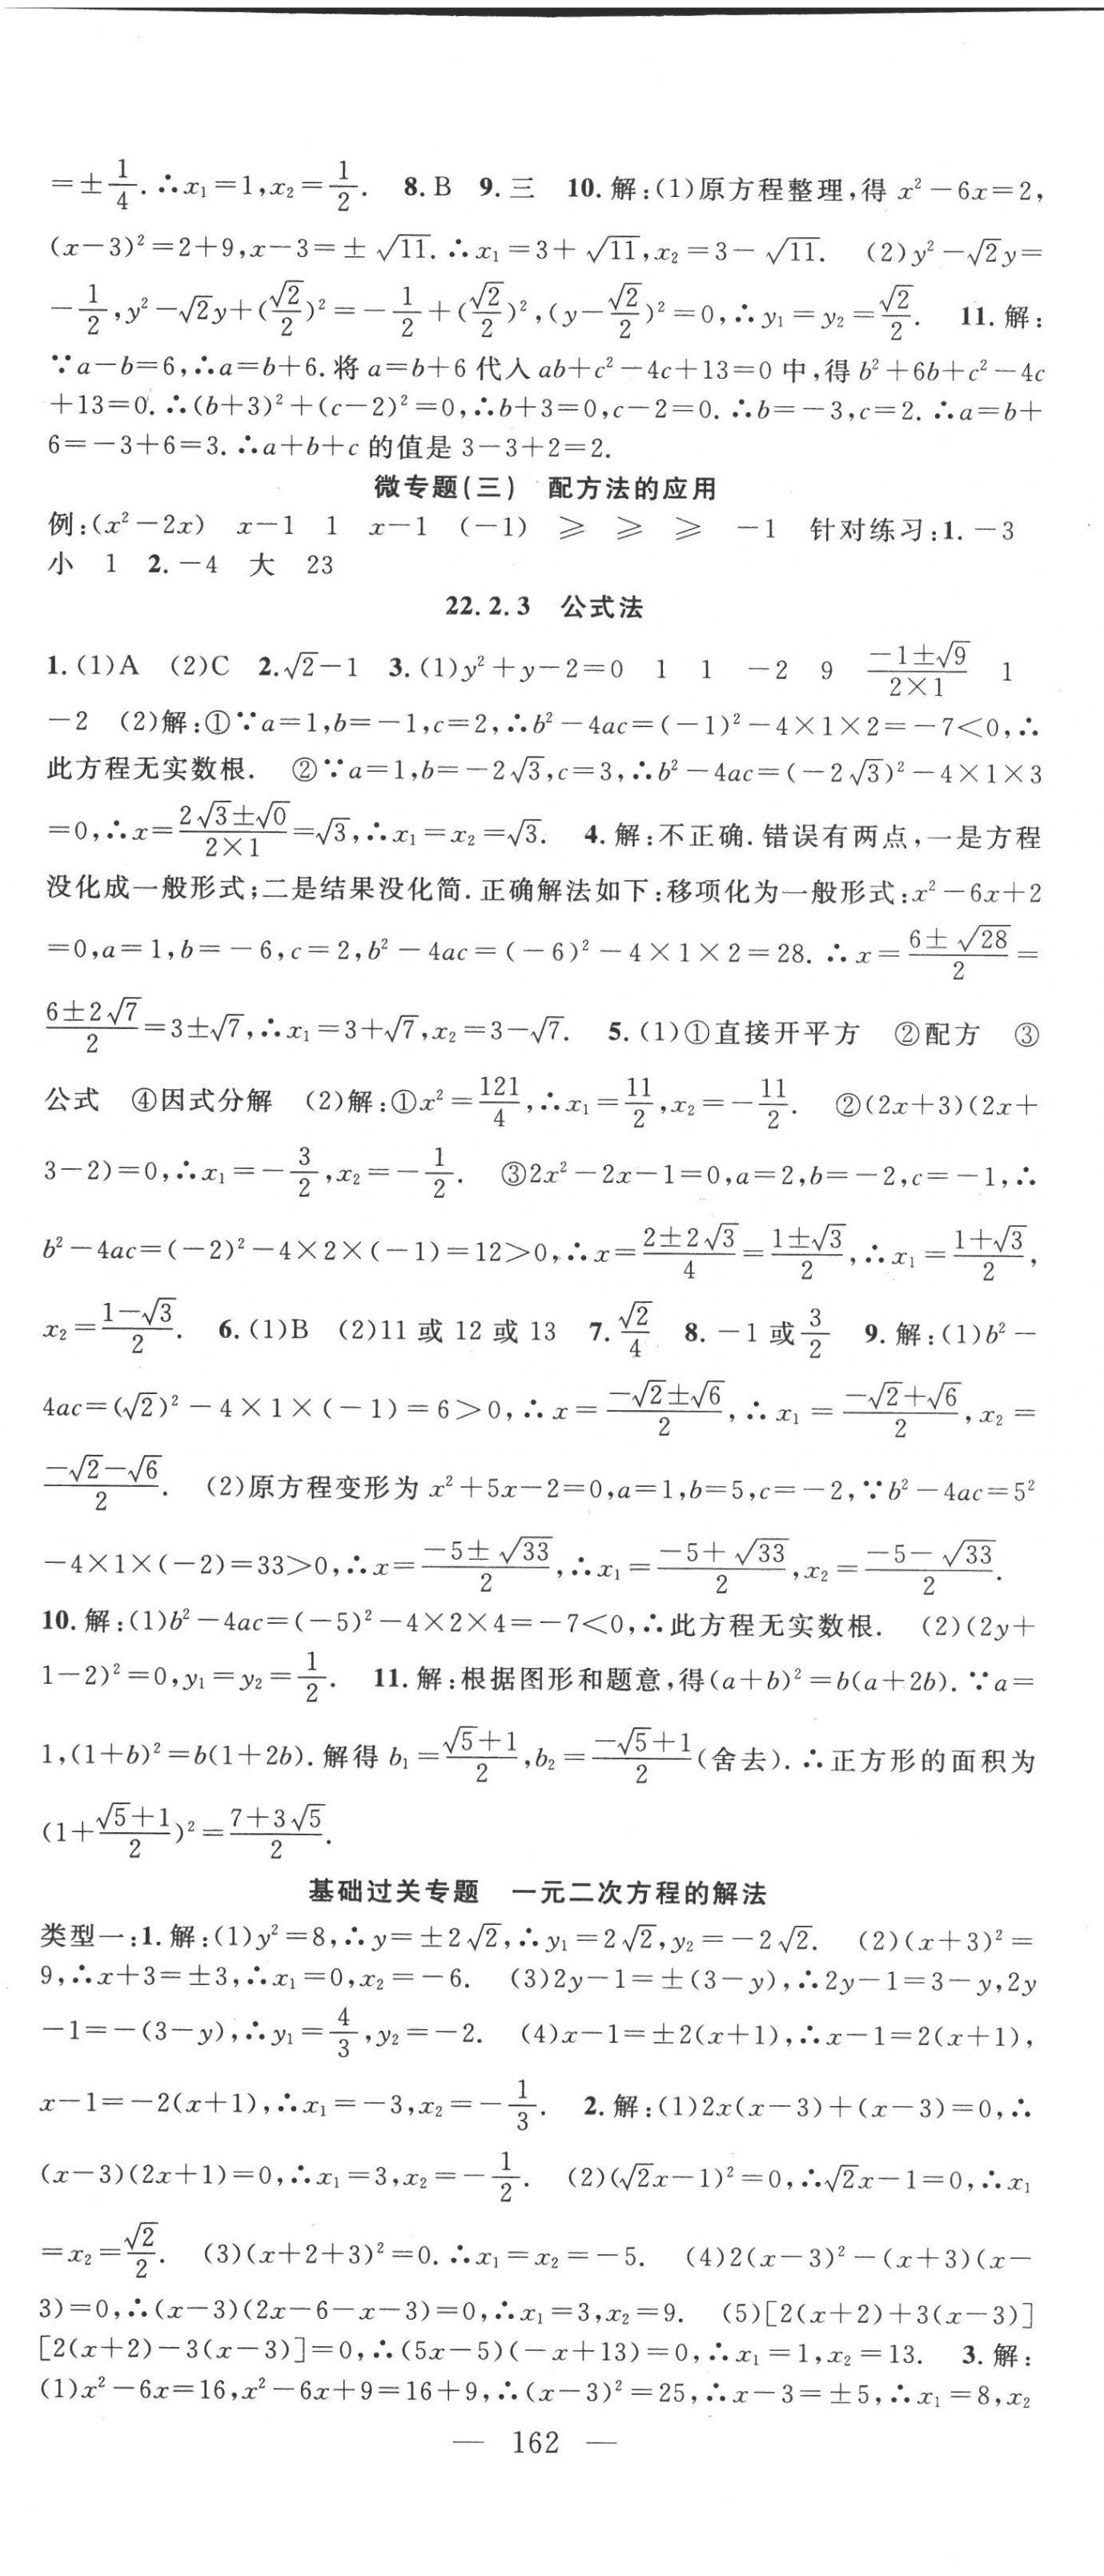 =±1/4.∴x₁=1,x₂=1/2. 8.B 9.三 10.解:(1)原方程整理,得 x²-6x=2,
(x-3)²=2+9,x-3=±√11.∴x₁=3+√11,x₂=3-√11. (2)y²-√2y=
-1/2,y²-√2y+(√2/2)²=-1/2+(√2/2)²,(y-√2/2)²=0,∴y₁=y₂=√2/2. 11.解:
∵a-b=6,∴a=b+6.将 a=b+6 代入 ab+c²-4c+13=0 中,得 b²+6b+c²-4c
+13=0.∴(b+3)²+(c-2)²=0,∴b+3=0,c-2=0.∴b=-3,c=2.∴a=b+
6=-3+6=3.∴a+b+c 的值是 3-3+2=2.
微专题(三) 配方法的应用
例:(x²-2x) x-1 1 x-1 (-1) ≥ ≥ ≥ -1 针对练习:1.-3
小 1 2.-4 大 23
22.2.3 公式法
1.(1)A (2)C 2.√2-1 3.(1)y²+y-2=0 1 1 -2 9 (-1±√9)/(2×1) 1
-2 (2)解:①∵a=1,b=-1,c=2,∴b²-4ac=(-1)²-4×1×2=-7<0,∴
此方程无实数根. ②∵a=1,b=-2√3,c=3,∴b²-4ac=(-2√3)²-4×1×3
=0,∴x=(2√3±√0)/(2×1)=√3,∴x₁=x₂=√3. 4.解:不正确.错误有两点,一是方程
没化成一般形式;二是结果没化简.正确解法如下:移项化为一般形式:x²-6x+2
=0,a=1,b=-6,c=2,b²-4ac=(-6)²-4×1×2=28.∴x=(6±√28)/2=
(6±2√7)/2=3±√7,∴x₁=3+√7,x₂=3-√7. 5.(1)①直接开平方 ②配方 ③
公式 ④因式分解 (2)解:①x²=121/4,∴x₁=11/2,x₂=-11/2. ②(2x+3)(2x+
3-2)=0,∴x₁=-3/2,x₂=-1/2. ③2x²-2x-1=0,a=2,b=-2,c=-1,∴
b²-4ac=(-2)²-4×2×(-1)=12>0,∴x=(2±2√3)/4=(1±√3)/2,∴x₁=(1+√3)/2,
x₂=(1-√3)/2. 6.(1)B (2)11 或 12 或 13 7.√2/4 8.-1 或 3/2 9.解:(1)b²-
4ac=(√2)²-4×1×(-1)=6>0,∴x=(-√2±√6)/2,∴x₁=(-√2+√6)/2,x₂=
(-√2-√6)/2. (2)原方程变形为 x²+5x-2=0,a=1,b=5,c=-2,∵b²-4ac=5²
-4×1×(-2)=33>0,∴x=(-5±√33)/2,∴x₁=(-5+√33)/2,x₂=(-5-√33)/2.
10.解:(1)b²-4ac=(-5)²-4×2×4=-7<0,∴此方程无实数根. (2)(2y+
1-2)²=0,y₁=y₂=1/2. 11.解:根据图形和题意,得(a+b)²=b(a+2b).∵a=
1,(1+b)²=b(1+2b).解得 b₁=(√5+1)/2,b₂=(-√5+1)/2(舍去).∴正方形的面积为
(1+(√5+1)/2)²=(7+3√5)/2.
基础过关专题 一元二次方程的解法
类型一:1.解:(1)y²=8,∴y=±2√2,∴y₁=2√2,y₂=-2√2. (2)(x+3)²=
9,∴x+3=±3,∴x₁=0,x₂=-6. (3)2y-1=±(3-y),∴2y-1=3-y,2y
-1=-(3-y),∴y₁=4/3,y₂=-2. (4)x-1=±2(x+1),∴x-1=2(x+1),
x-1=-2(x+1),∴x₁=-3,x₂=-1/3. 2.解:(1)2x(x-3)+(x-3)=0,∴
(x-3)(2x+1)=0,∴x₁=3,x₂=-1/2. (2)(√2x-1)²=0,∴√2x-1=0,∴x₁
=x₂=√2/2. (3)(x+2+3)²=0.∴x₁=x₂=-5. (4)2(x-3)²-(x+3)(x-
3)=0,∴(x-3)(2x-6-x-3)=0,∴x₁=3,x₂=9. (5)[2(x+2)+3(x-3)]
[2(x+2)-3(x-3)]=0,∴(5x-5)(-x+13)=0,∴x₁=1,x₂=13. 3.解:
(1)x²-6x=16,x²-6x+9=16+9,∴(x-3)²=25,∴x-3=±5,∴x₁=8,x₂
— 162 —